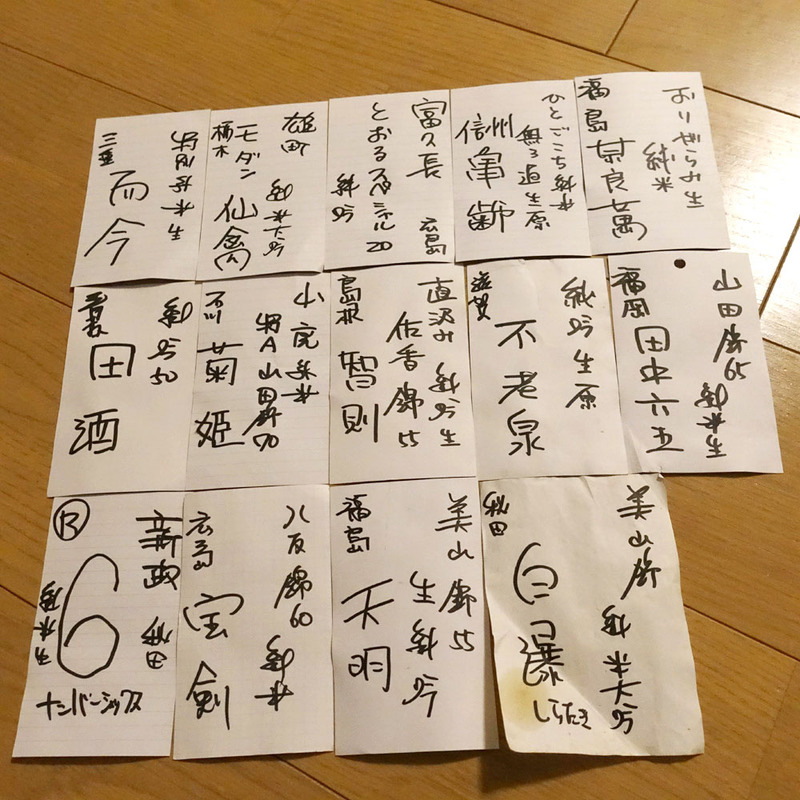 特別純米生
三重
而今
雄町
純米大吟
モダン
仙禽
栃木
富久長 広島
とおるスペシャル20
純吟
ひとごこち 純米
無ろ過生原
信州
亀齢
おりがらみ生
純米
福島
奈良萬
純吟50
青森
田酒
山廃純米
特A山田錦70
石川
菊姫
直汲み 純吟生
佐香錦55
島根
智則
純吟生原
滋賀
不老泉
山田錦65
純米生
福岡
田中六五
新政 秋田
R
6
ナンバーシックス
八反錦60
純米
広島
宝剣
美山錦55
生純吟
福島
天明
美山錦
純米大吟
秋田
白瀑
しらたき